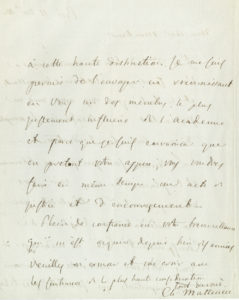 à cette haute distinction. Je me suis
permis de l'envoyer en reconnaissant
en vous un des membres le plus
justement influens de l'académie
et parce que je suis convaincu que
en prêtant votre appui, vous
faire en même temps un acte de
justice et d'encouragement.
Plein de confiance en votre bienveillance
qui m'est acquise depuis bien d'années
veuillez me croire et me croire avec
les sentimens de la plus haute considération
tout dévoué
Ch. Matteucci